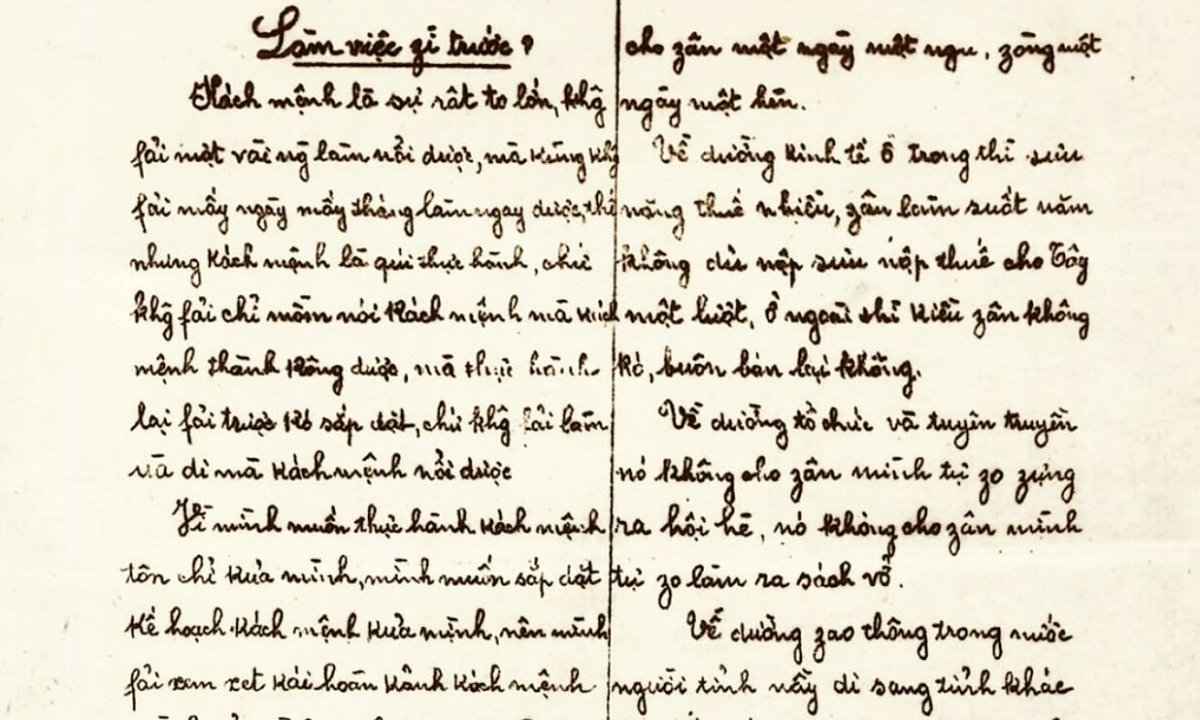 Làm việc gì trước?
Kách mệnh là sự rất to lớn, khg̃
fải một vài ng̃ làm nổi được, mà kũng khg̃
fải mấy ngày mấy tháng làm ngay được, thế
nhưng kách mệnh là quí thực hành, chứ
khg̃ fải chỉ mồm nói kách mệnh mà kách
mệnh thành kông được, mà thực hành
lại fải trước kó sắp đặt, chứ khg̃ fải làm
và đi mà kách mệnh nổi được
Vì mình muốn thực hành kách mệnh
tôn chỉ kủa mình, mình muốn sắp đặt
kế hoạch kách mệnh kủa mình, nên mình
fải xem xet kái hoàn kảnh kách mệnh
cho zân một ngày một ngu, zòng một
ngày một hèn.
Về đường kinh tế ở trong thì sưu
nặng thuế nhiều, zân làm suốt năm
không đủ nộp sưu nộp thuế cho Tây
một lượt, ở ngoài thì kiều zân không
kó, buôn bán lại không.
Về đường tổ chức và tuyên truyền
nó không cho zân mình tự zo zựng
ra hội hè, nó không cho zân mình
tự zo làm ra sách vở.
Về đường zao thông trong nước
người tỉnh nầy đi sang tỉnh khác